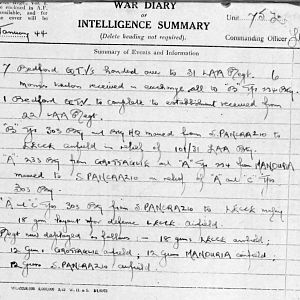 WAR DIARY
or
INTELLIGENCE SUMMARY
(Delete heading not required).
Unit
Commanding Officer
January 44
Summary of Events and Information
7 Bedford QTVs handed over to 31 LAA Regt. 6
Morris received in exchange all to "B" Tp 234 Bty.
1 Bedford QTV to complete to establishment received from
22 LAA Regt.
"B" Tp 303 Bty and Bty HQ moved from S. PANCRAZIO to
LECCE airfield in relief of 101/31 LAA Bty.
"A" 233 Bty from GROTTAGLIE and "A" Tp 234 from MANDURIA
moved to S. PANCRAZIO in relief of "A" and "C" Tps
303 Bty.
"A" and "C" Tps 303 Bty from S. PANCRAZIO to LECCE making
18 gun layout for defence LECCE airfield.
Regt now deployed as follows :- 18 guns LECCE airfield;
12 guns GROTTAGLIE airfield; 12 guns MANDURIA airfield;
12 guns S. PANCRAZIO airfield.